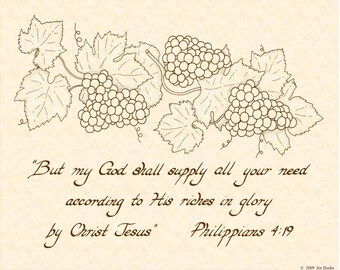 "But my God shall supply all your need
according to His riches in glory
by Christ Jesus" Philippians 4:19
© 2009 Jon Dreiks